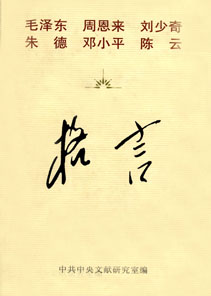 毛泽东 周恩来 刘少奇
朱 德 邓小平 陈 云
格言
中共中央文献研究室编